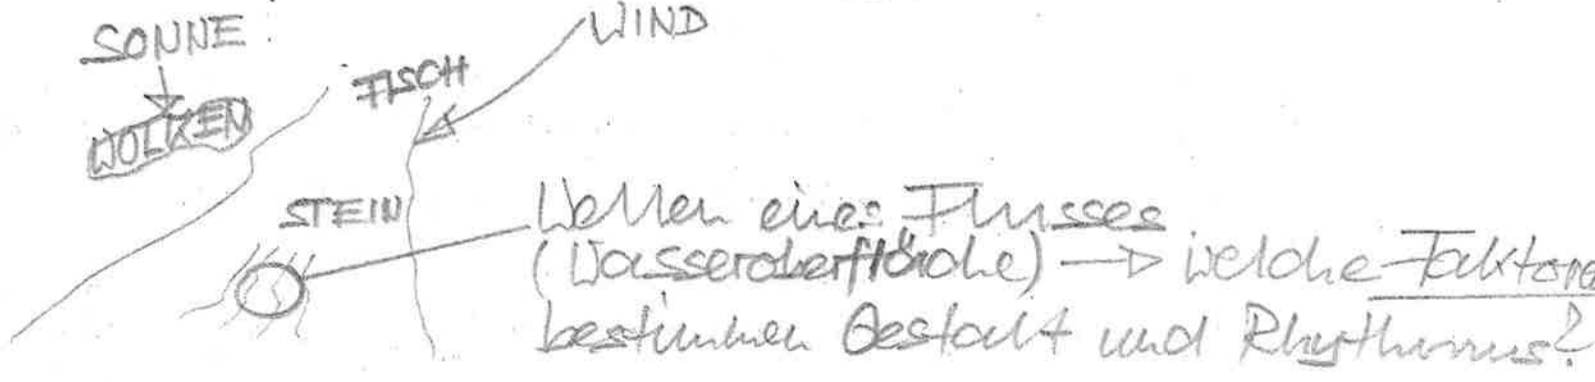 SONNE:
WIND
FISCH
WOLKEN
STEIN
Wellen eines Flusses
(Wasseroberfläche) → welche Faktoren
bestimmen Gestalt und Rhythmus?